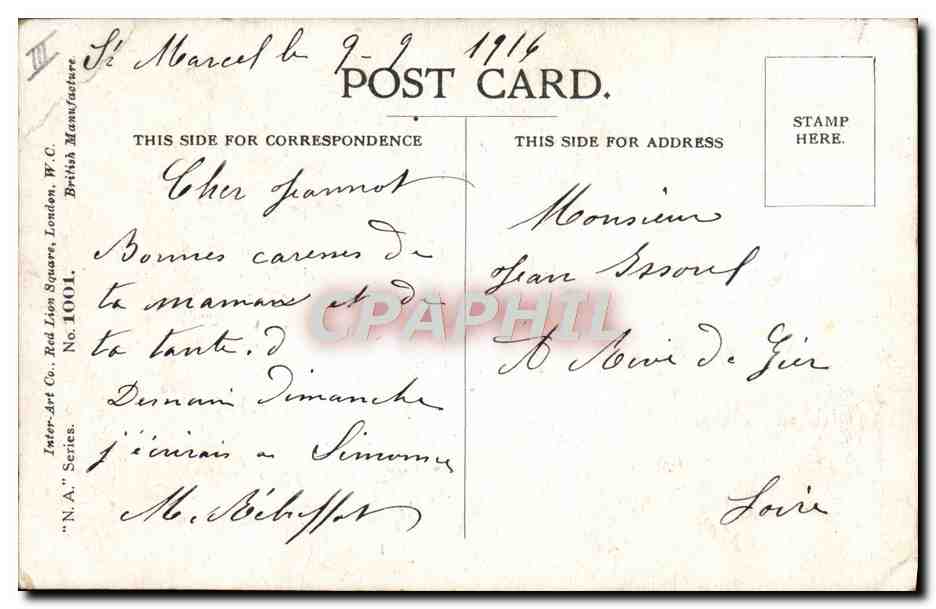 III
St Marcel le 9-9 1916
POST CARD.
THIS SIDE FOR CORRESPONDENCE
Cher Jeannot
Bonnes caresses de
ta maman et de
ta tante. d
Demain dimanche
j'écrirais a Simonne
M. Rébuffat
THIS SIDE FOR ADDRESS
STAMP
HERE.
Monsieur
Jean
A Rive de Gier
Loire
Inter-Art Co., Red Lion Square, London, W.C.
"N.A." Series. No. 1001. British Manufacture.
CPAPHIL